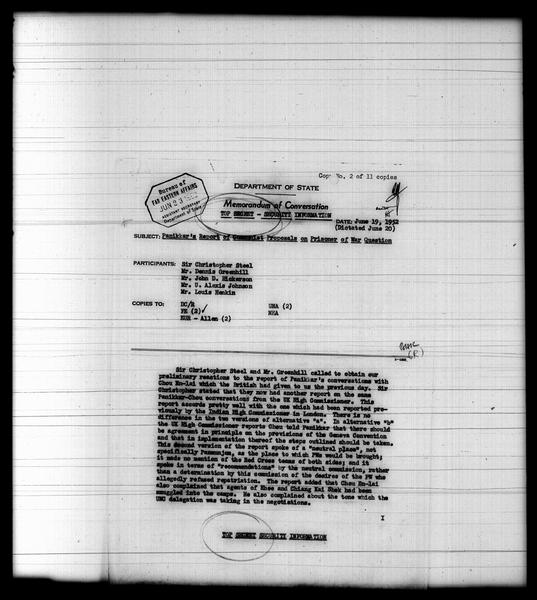 Copy No. 2 of 11 copies
DEPARTMENT OF STATE
Memorandum of Conversation
TOP SECRET - SECURITY INFORMATION
Bureau of
FAR EASTERN AFFAIRS
JUN 23 1952
Department of State
DATE: June 19, 1952
(Dictated June 20)
SUBJECT: Panikkar's Report of Communist Proposals on Prisoner of War Question
PARTICIPANTS: Sir Christopher Steel
Mr. Dennis Greenhill
Mr. John D. Hickerson
Mr. U. Alexis Johnson
Mr. Louis Henkin
COPIES TO: DC/R UNA (2)
FE (2) ✓ NEA
EUR - Allen (2)
Sir Christopher Steel and Mr. Greenhill called to obtain our
preliminary reactions to the report of Panikkar's conversations with
Chou En-lai which the British had given to us the previous day. Sir
Christopher stated that they now had another report on the same
Panikkar-Chou conversations from the UK High Commissioner. This
report accords pretty well with the one which had been reported pre-
viously by the Indian High Commissioner in London. There is no
difference in the two versions of alternative "a". In alternative "b"
the UK High Commissioner reports Chou told Panikkar that there should
be agreement in principle on the provisions of the Geneva Convention
and that in implementation thereof the steps outlined should be taken.
This second version of the report spoke of a "neutral place", not
specifically Panmunjom, as the place to which PWs would be brought;
it made no mention of the Red Cross teams of both sides; and it
spoke in terms of "recommendations" by the neutral commission, rather
than a determination by this commission of the desires of the PW who
allegedly refused repatriation. The report added that Chou En-lai
also complained that agents of Rhee and Chiang Kai Shek had been
smuggled into the camps. He also complained about the tone which the
UNC delegation was taking in the negotiations.
I
TOP SECRET SECURITY INFORMATION